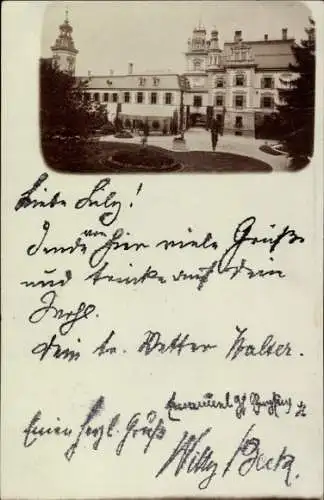 Liebe Lily!
Sende von hier viele Grüße
und trinke auf Dein
Wohl.
Dein tr. Vetter Walter.
Emanuel
Einen herzl. Gruß
Willy Beck